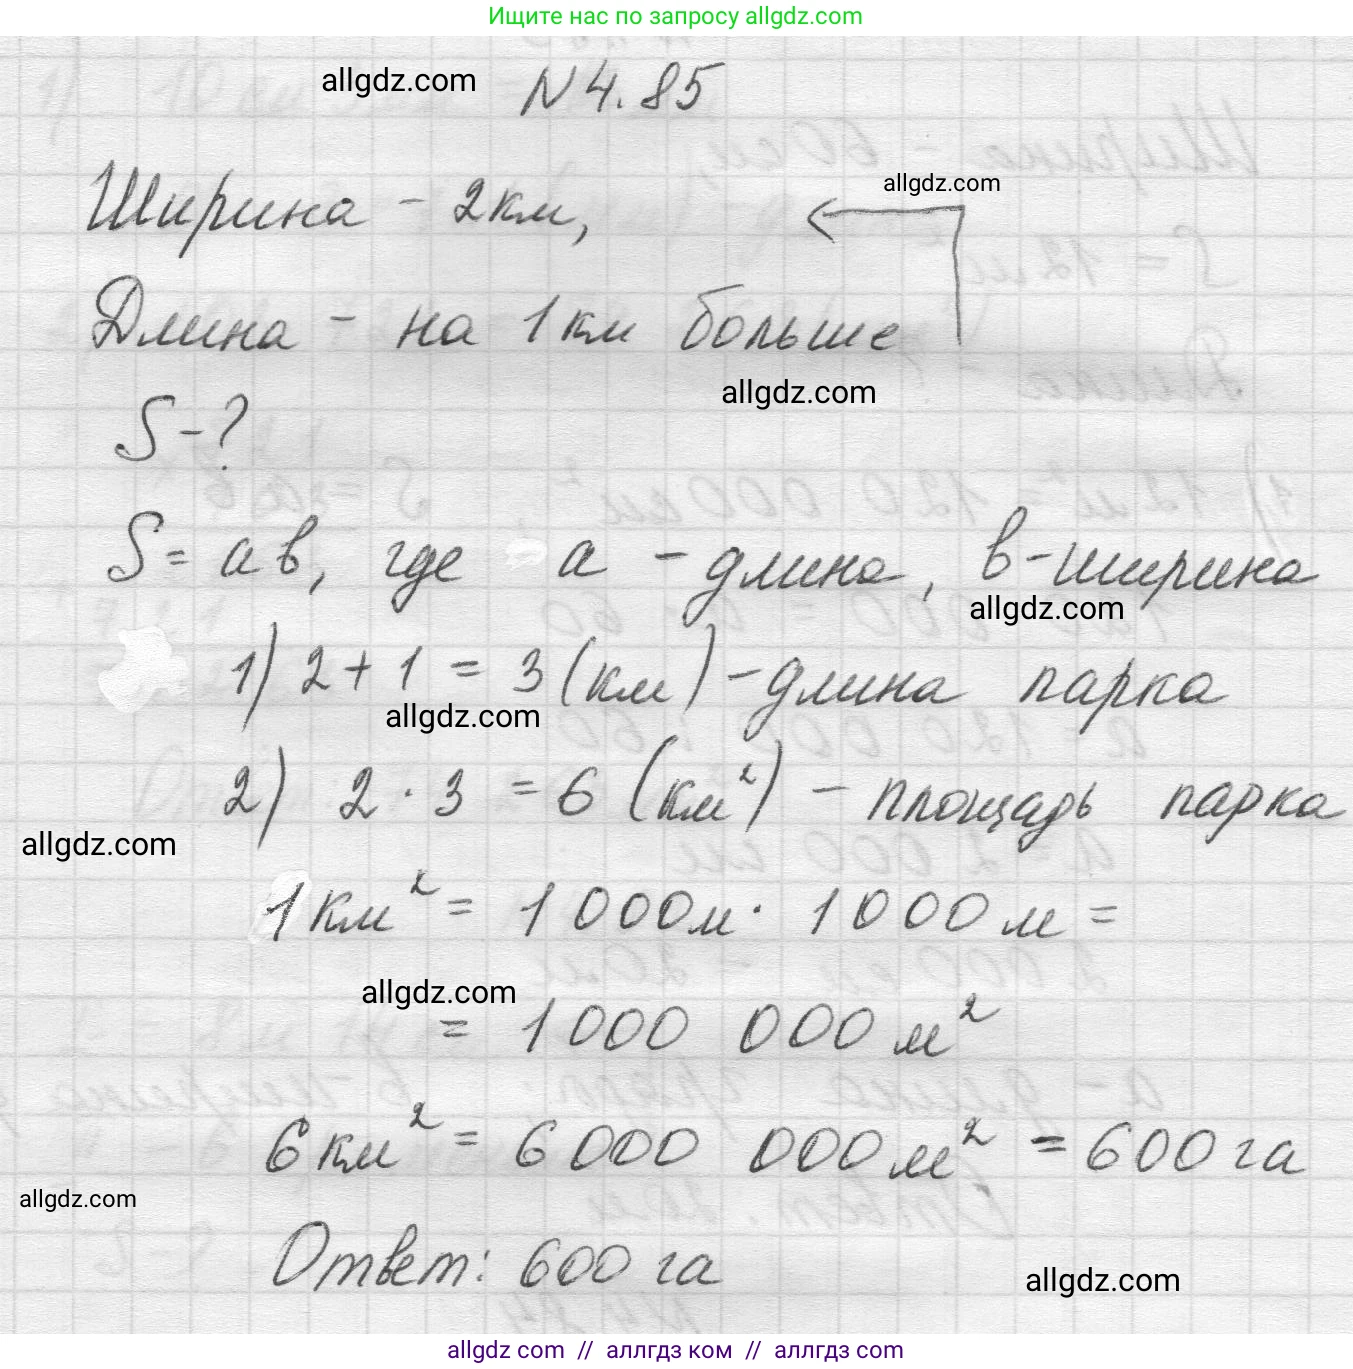 Ищите нас по запросу allgdz.com
allgdz.com
N 4.85
Ширина - 2км,
allgdz.com
Длина - на 1км больше
allgdz.com
S - ?
S = ав, где а - длина, в - ширина
allgdz.com
1) 2 + 1 = 3 (км) - длина парка
allgdz.com
2) 2 · 3 = 6 (км²) - площадь парка
allgdz.com
1км² = 1 000м · 1 000м =
allgdz.com
= 1 000 000 м²
6км² = 6 000 000 м² = 600 га
allgdz.com
Ответ: 600 га
allgdz.com
allgdz com // аллгдз ком // аллгдз com